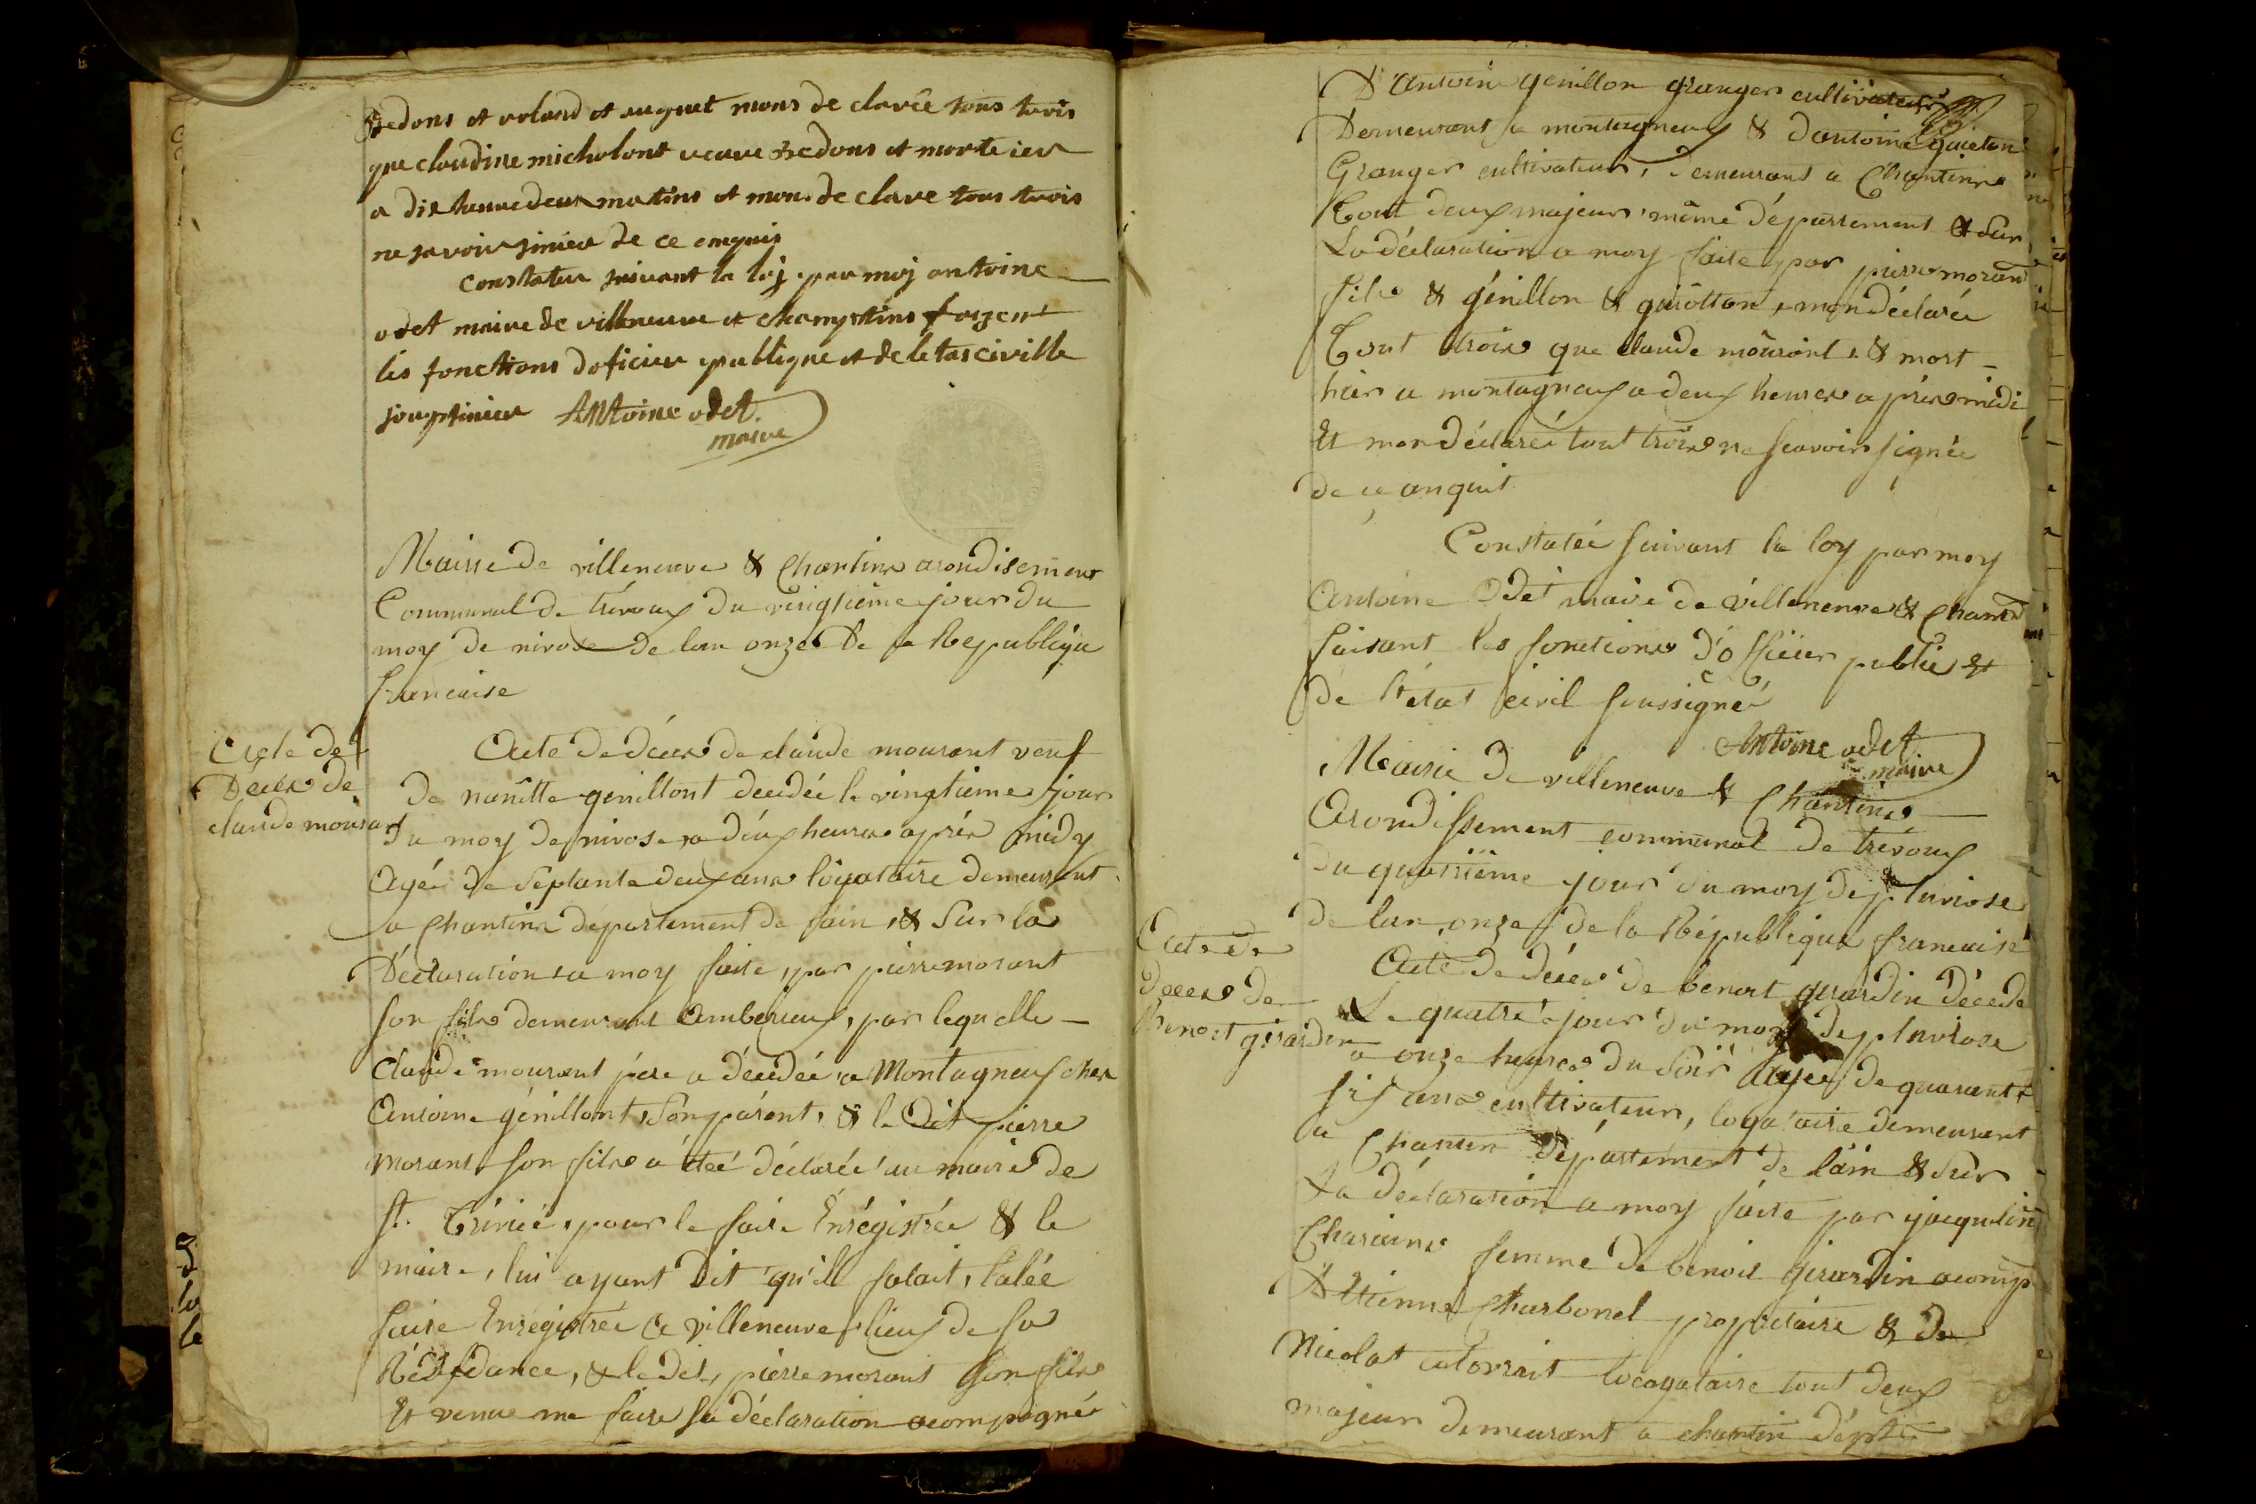 fredons et roland et auguet mons de clarée tous trois
que claudine micholont veuve fredons et morte ier
a dis heuredeux matins et mons de clare tous trois
ne savoir sinier de ce enquis
Constater suivant la loj par moj antoine
odet maire de villeneuve et champtins faizent
lès fonctions doficier publique et de letas civille
sougsinier Antoine odet.
maire
Mairie De villeneuve & Chantins arondisement
Communal de trévoux du vingtieme jour du
moy de nivose de lan onze De la Republique
francaise
Acte de
Deces de
claude mourant
Acte De déces de claude mourant veuf
De nanette genillont decedée le vingtieme jour
du moy de nivose a deux heures après midy
Agée de Septante deux ans logataire demeurant
a Chantins département de lain & Sur la
Déclaration a moy faite par pierre morant
son fils demeurant Amberieux, par lequelle
Claude mourant père a décedée a Montagneux ches
Antoine génillont, Son parent, & le Dit pierre
morant son fils a étéé déclarée au maire de
st. Trinié, pour le faire Enrégistrée & le
maire, lui ayant Dit qu'ill falait, lalée
faire Enrégistrée a villeneuve lieux de sa
Résidance, & le dit, pierre morant son fils
Et venue me faire sa déclaration acompagné
D'Antoine genillon Granger cultivateur
Demeurant a montagneux & d'antoine guieton
Granger cultivateur, demeurant a Chantins
Tout deux majeurs même département & Sur
La déclaration a moy faite par pierre morant
fils & génillon & guiotton, mon déclarée
Tout trois que claude mourant, & mort
hier a montagneux a deux heures après midi
Et mon déclarée tout trois ne scavoir signée
de ce anquit
Constatée suivant la loy par moy
Antoine Odet maire de villeneuve & Chant
faisant les fonctions d'officier public et
de l'état civil soussigné
Antoine odet.
maire
Mairie de villeneuve & Chantins
Arondissement communal de trévoux
du quatrième jour du moy de pluviose
de lan onze de la République francaise
Acte de
Deces de
Benoit girardin
Acte de déces de benoit girardin décede
Le quatre jour du moy de pluviose
a onze heures du Soir Agée de quarante
six ans cultivateur, logataire demeurant
a Chantin département de lain & Sur
la déclaration a moy faite par jacqueline
Charieins femme de benoit girardin acomp
D'Etienne Charbonel propriétaire & de
Nicolas locagataire tout deux
majeur demeurant a chantin dépt